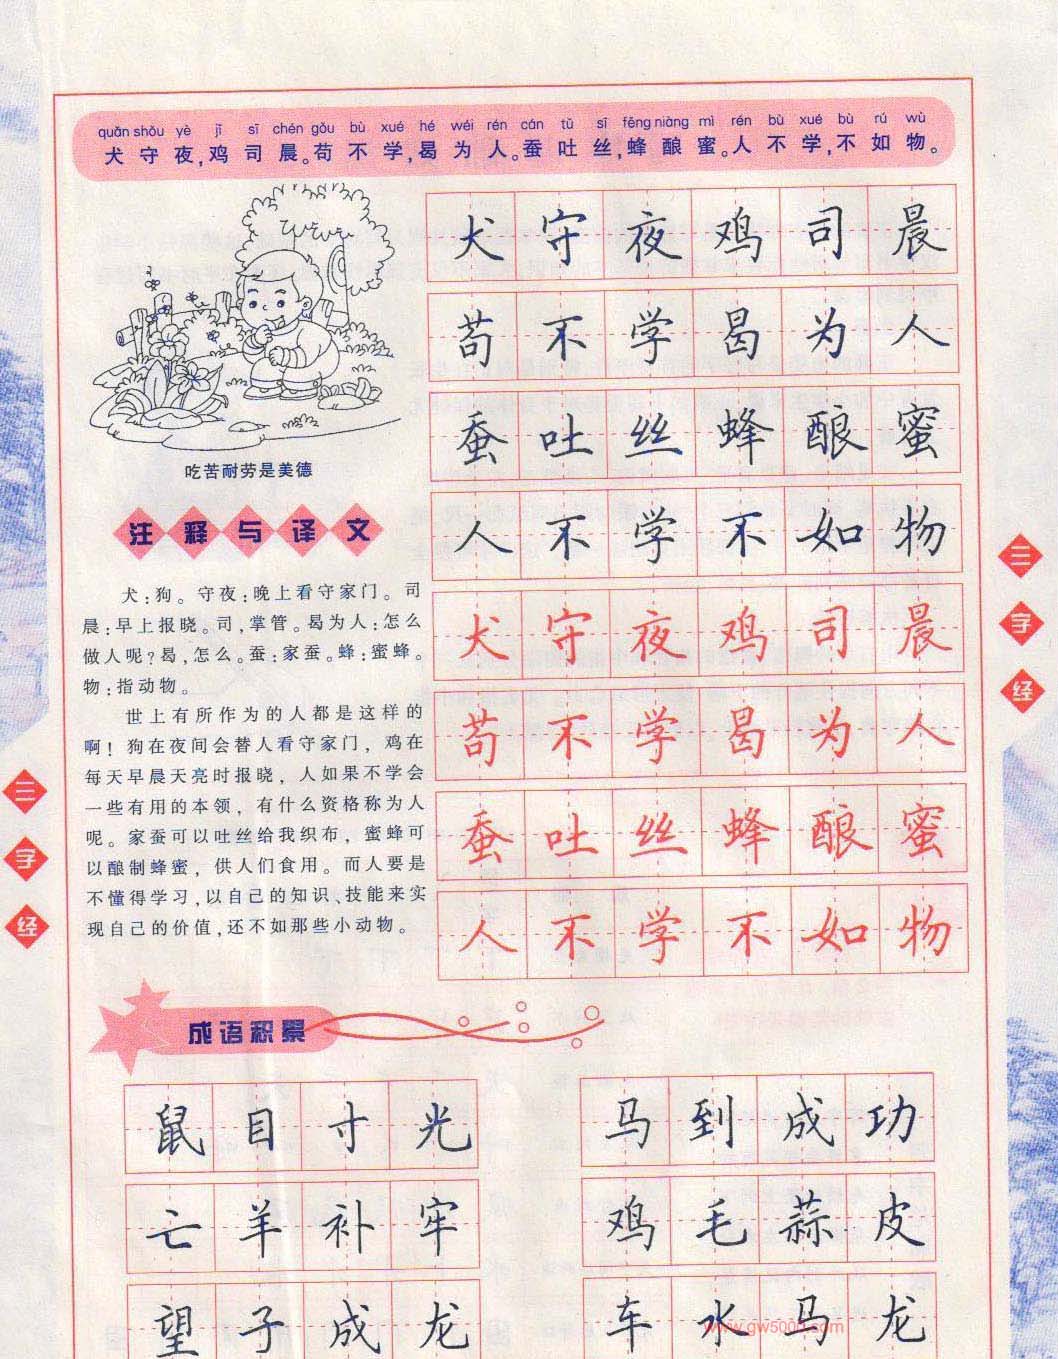 quǎn shǒu yè jī sī chén gǒu bù xué hé wéi rén cán tǔ sī fēng niàng mì rén bù xué bù rú wù
犬守夜,鸡司晨。苟不学,曷为人。蚕吐丝,蜂酿蜜。人不学,不如物。
犬守夜鸡司晨
苟不学曷为人
蚕吐丝蜂酿蜜
人不学不如物
犬守夜鸡司晨
苟不学曷为人
蚕吐丝蜂酿蜜
人不学不如物
吃苦耐劳是美德
注释与译文
犬:狗。守夜:晚上看守家门。司
晨:早上报晓。司,掌管。曷为人:怎么
做人呢?曷,怎么。蚕:家蚕。蜂:蜜蜂。
物:指动物。
世上有所作为的人都是这样的
啊!狗在夜间会替人看守家门,鸡在
每天早晨天亮时报晓,人如果不学会
一些有用的本领,有什么资格称为人
呢。家蚕可以吐丝给我织布,蜜蜂可
以酿制蜂蜜,供人们食用。而人要是
不懂得学习,以自己的知识、技能来实
现自己的价值,还不如那些小动物。
三字经
三字经
成语积累
鼠目寸光
亡羊补牢
望子成龙
马到成功
鸡毛蒜皮
车水马龙
www.gw5000.com